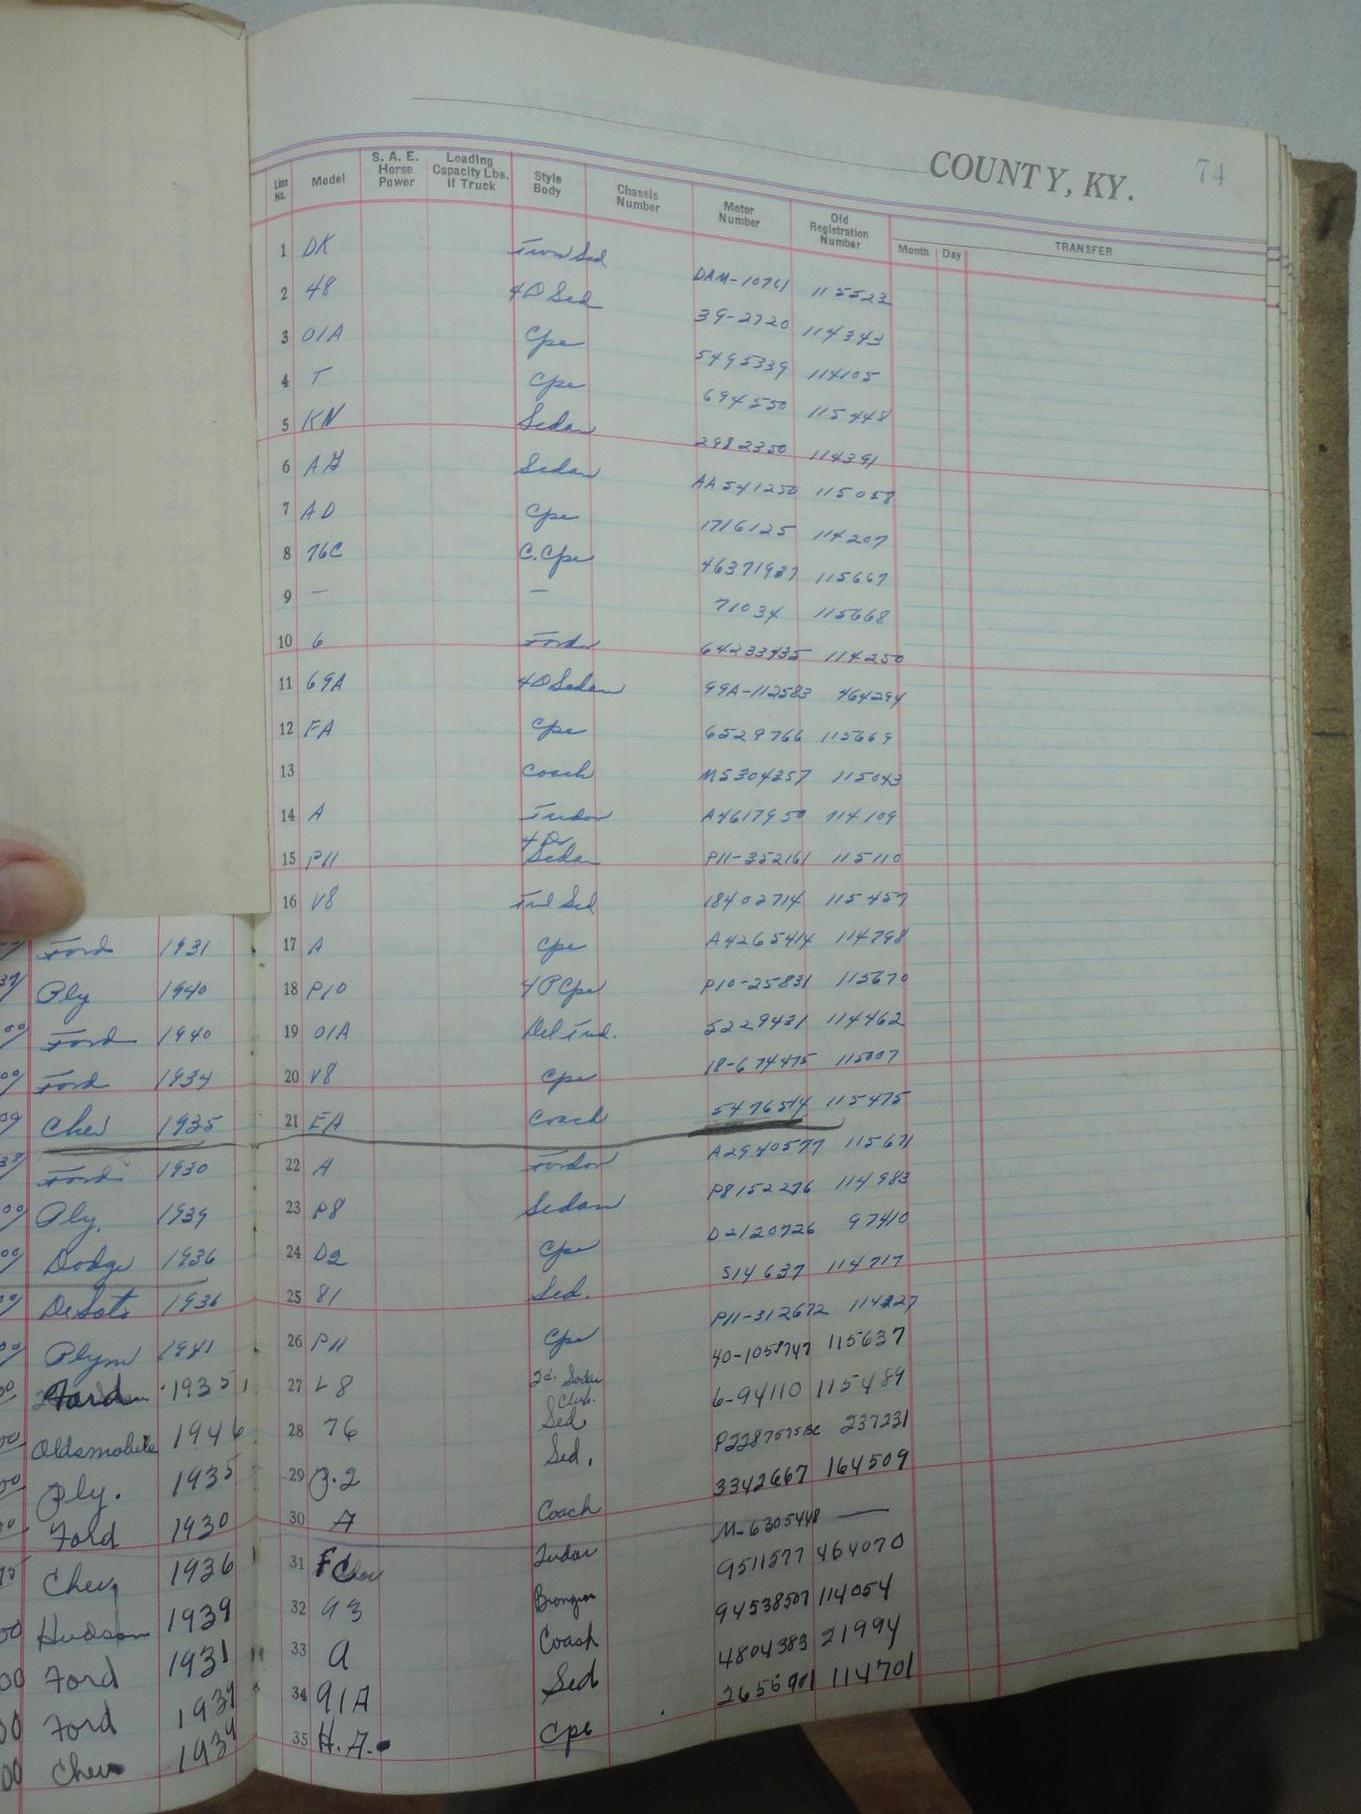 COUNTY, KY. 74
Line No. Model S. A. E. Horse Power Loading Capacity Lbs. If Truck Style Body Chassis Number Motor Number Old Registration Number Month Day TRANSFER
1 DK Town Sed DAM-10761 115523
2 48 4D Sed 39-2720 114343
3 01A Cpe 5495339 114105
4 T Cpe 694550 115448
5 KN Sedan 2982350 114391
6 Sedan AA541250 115058
7 AD Cpe 1716125 114207
8 76C C.Cpe 46371937 115667
9 — — 71034 115668
10 6 Fordor 64233435 114250
11 69A 4D Sedan 99A-112583 464294
12 FA Cpe 6529766 115669
13 Coach M5304357 115043
14 A Tudor A4617950 114109
15 P11 4 Dr Sedan P11-352161 115110
16 V8 Tud Sed 18402714 115457
Ford 1931 17 A Cpe A4265414 114798
Ply 1940 18 P10 4PCpe P10-25831 115670
Ford 1940 19 01A Del Tud. 5229431 114462
Ford 1934 20 V8 Cpe 18-674475 115007
Chev 1935 21 EA Coach 5476514 115475
Ford 1930 22 A Fordor A2940577 115671
Ply. 1939 23 P8 Sedan P8152276 114983
Dodge 1936 24 D2 Cpe D2120726 97410
DeSoto 1936 25 81 Sed. 514637 114717
Plym 1941 26 P11 Cpe P11-312672 114227
Ford 1935 27 L8 2d. Sedan 40-1058747 115637
Oldsmobile 1946 28 76 Club. Sed 6-94110 115489
Ply. 1935 29 Sed. 237231
Ford 1930 30 A Coach 3342667 164509
Chev 1936 31 Tudor M-6305448 —
Hudson 1939 32 93 9511577 464070
Ford 1931 33 a Coach 94538507 114054
Ford 1939 34 91A Sed 4804383 21994
Chev 1934 35 H.A. Cpe 2656901 114701